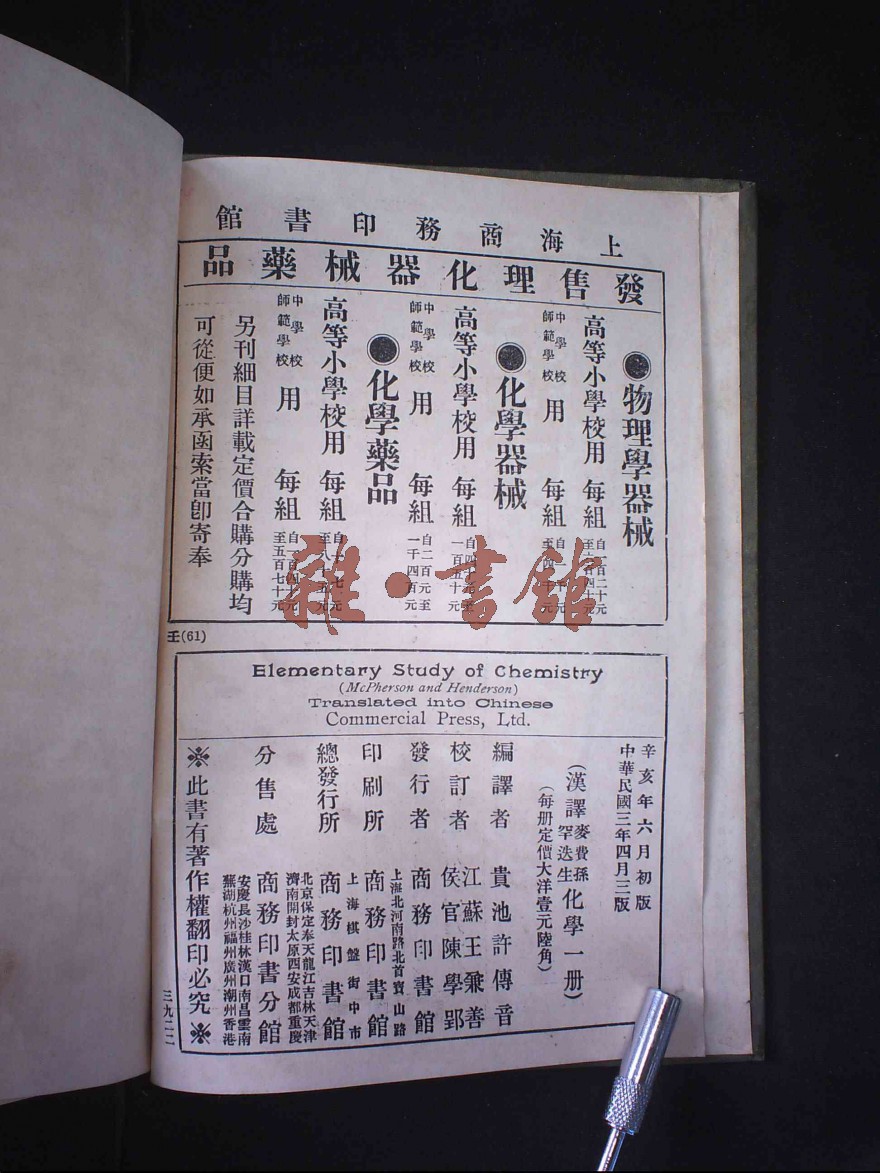 上海商務印書館
發售理化器械藥品
●物理學器械
高等小學校用 每組 自一百二十元
中學校師範學校用 每組
●化學器械
高等小學校用 每組 一百五十元
中學校師範學校用 每組 自二百元至一千四百元
●化學藥品
高等小學校用 每組
中學校師範學校用 每組 至五百七十元
另刊細目詳載定價合購分購均
可從便如承函索當卽寄奉
雜·書館
王(61)
Elementary Study of Chemistry
(McPherson and Henderson)
Translated into Chinese
Commercial Press, Ltd.
辛亥年六月初版
中華民國三年四月三版
(漢譯麥費孫罕迭生化學一册)
(每册定價大洋壹元陸角)
編譯者 貴池許傳音
校訂者 江蘇王兼善
侯官陳學郢
發行者 商務印書館
上海北河南路北首寶山路
印刷所 商務印書館
上海棋盤街中市
總發行所 商務印書館
北京保定奉天龍江吉林天津
濟南開封太原西安成都重慶
分售處 商務印書分館
安慶長沙桂林漢口南昌雲南
蕪湖杭州福州廣州潮州香港
※此書有著作權翻印必究※
三九二二